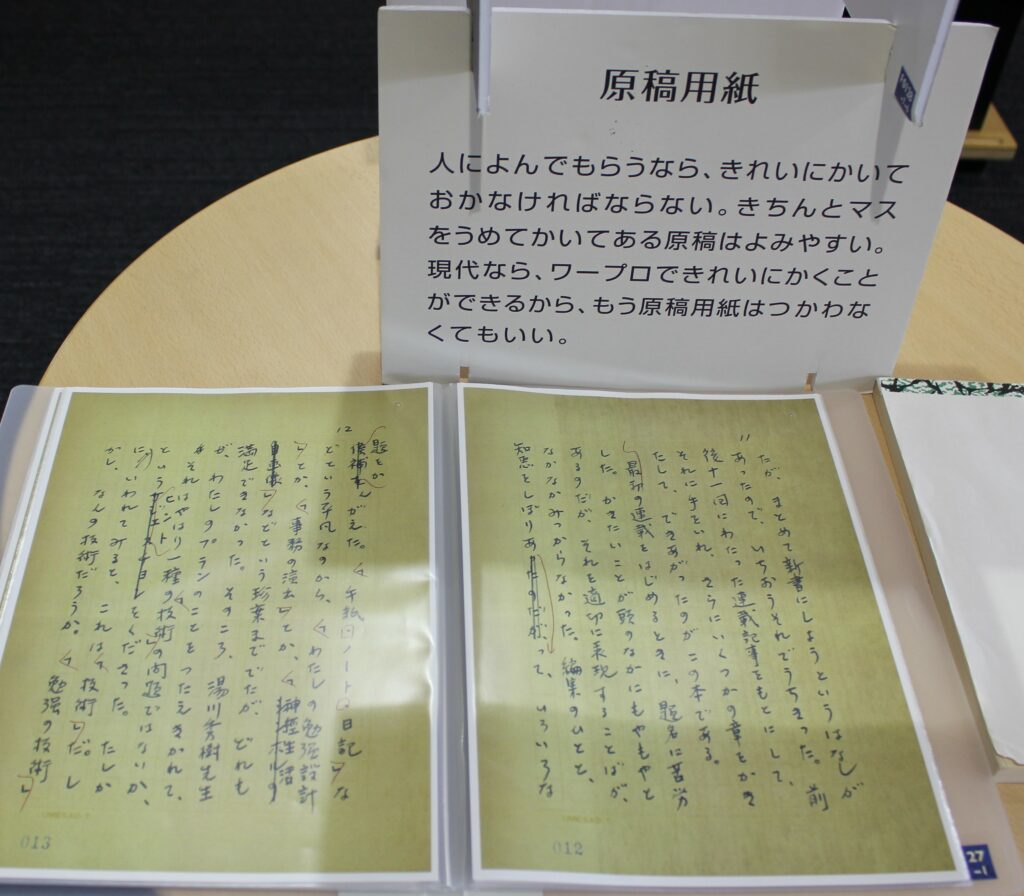 原稿用紙
人によんでもらうなら、きれいにかいて
おかなければならない。きちんとマス
をうめてかいてある原稿はよみやすい。
現代なら、ワープロできれいにかくこと
ができるから、もう原稿用紙はつかわな
くてもいい。
11
たが、まとめて新書にしようというはなしが
あったので、いちおうそれでうちきった。前
後十一回にわたった連載記事をもとにして、
それに手をいれ、さらにいくつかの章をかき
たして、できあがったのがこの本である。
最初の連載をはじめるときに、題名に苦労
した。かきたいことが頭のなかにもやもやと
あるのだが、それを適切に表現することばが、
なかなかみつからなかった。編集のひとと、
知恵をしぼりあって、いろいろな
012
12
題をか
んがえた。「手紙・ノート・日記」な
どという平凡なのから、「わたしの勉強設計
」とか、「事務の
」などという珍案まででたが、どれも
満足できなかった。そのころ、湯川秀樹先生
が、わたしのプランのことをつたえきかれて、
それはやはり一種の「技術」の問題ではないか、
というヒントをくださった。たしか
に、いわれてみると、これは「技術」だ。し
かし、なんの技術だろうか。「勉強の技術」
013
27